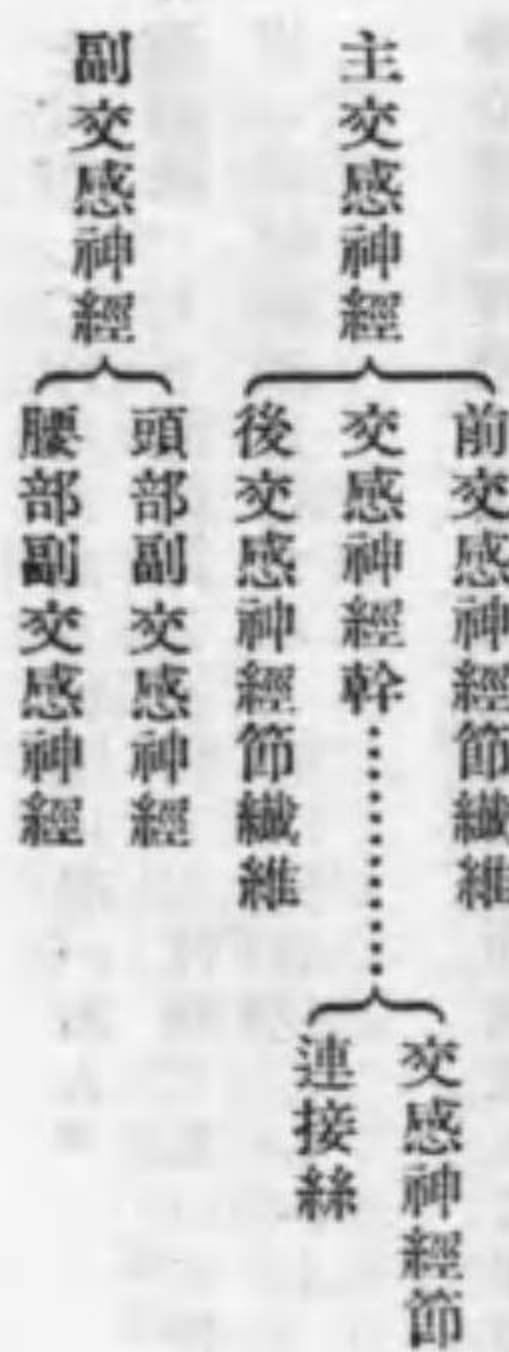 主交感神經
前交感神經節纖維
交感神經幹
交感神經節
連接絲
後交感神經節纖維
副交感神經
頭部副交感神經
腰部副交感神經